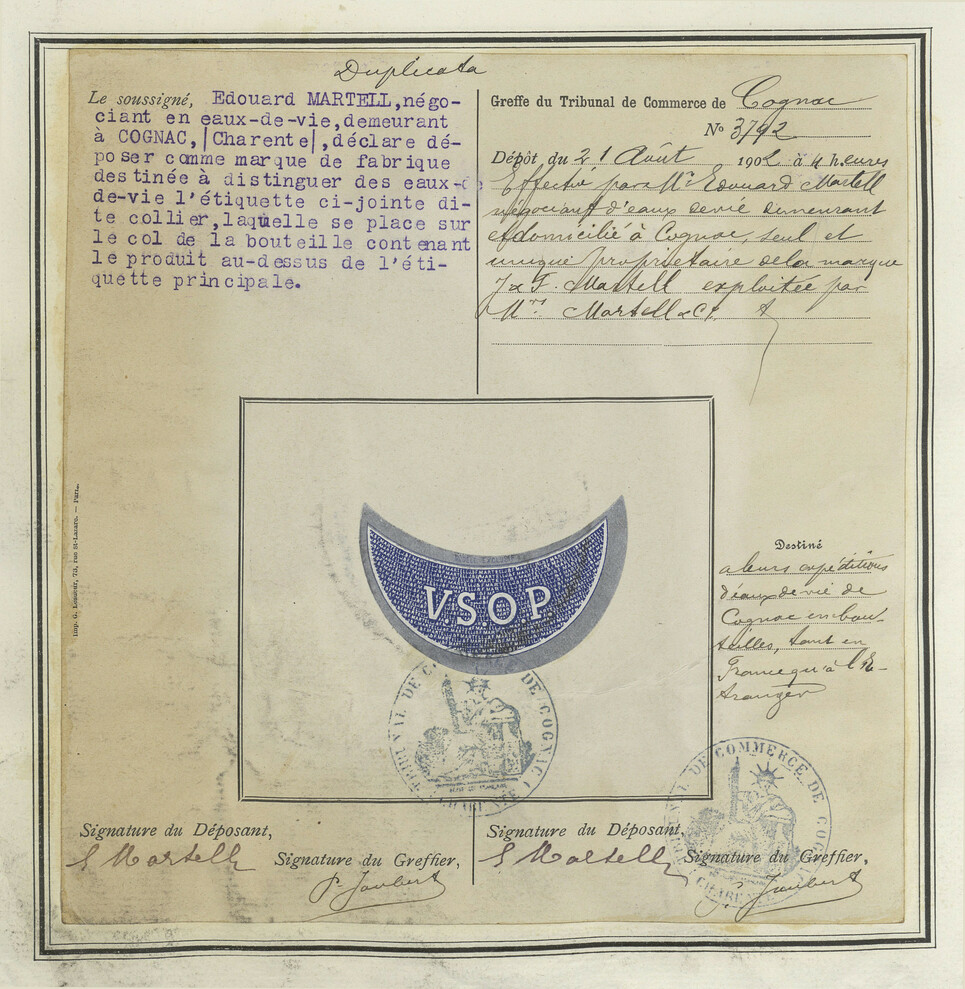 Duplicata
Le soussigné, Edouard MARTELL,négo-
ciant en eaux-de-vie,demeurant
à COGNAC,|Charente|,déclare dé-
poser comme marque de fabrique
destinée à distinguer des eaux-d
de-vie l'étiquette ci-jointe di-
te collier,laquelle se place sur
le col de la bouteille contenant
le produit au-dessus de l'éti-
quette principale.
Greffe du Tribunal de Commerce de Cognac
No 3792
Dépôt du 21 Août 1902 à 4 heures
Effectué par Mr Edouard Martell
négociant d'eaux de vie demeurant
et domicilié à Cognac, seul et
unique propriétaire de la marque
J & F. Martell exploitée par
Mrs Martell & Cie
Imp. G. Lesueur, 73, rue St-Lazare. — Paris.
V.S.O.P
TRIBUNAL DE COMMERCE DE COGNAC
CHARENTE
Destiné
a leurs expéditions
d'eaux de vie de
Cognac en bou-
teilles, tant en
France qu'à l'E-
tranger
DE COMMERCE DE
CHARENTE
Signature du Déposant,
E Martell
Signature du Greffier,
P. Joubert
Signature du Déposant,
E Martell
Signature du Greffier,
P. Joubert